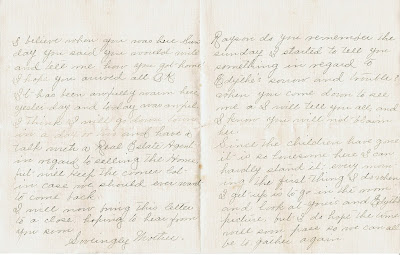 I believe when you was here Sun
day you said you would write
and tell me how you got home
I hope you arrived all O.K.
It has been awfully warm here
yesterday and today was awful
I think I will go down to
in a day or so and have a
talk with a Real Estate Agent
in regard to selling the House
but will keep the corner Lot
in case we should ever want
to come back
I will now bring this letter
to a close hoping to hear from
you soon
Lovingly Mother
do you remember the
sunday I started to tell you
something in regard to
Edythe's sorrow and trouble
when you come down to see
me I will tell you all, and
I know you will not blame
her.
Since the children have gone
it is so lonesome here I can
hardly stand it, every morn
ing the first thing I do when
I get up is to go in the room
and look at yours and Edythe
picture, but I do hope the time
will soon pass so we can all
be to gather again